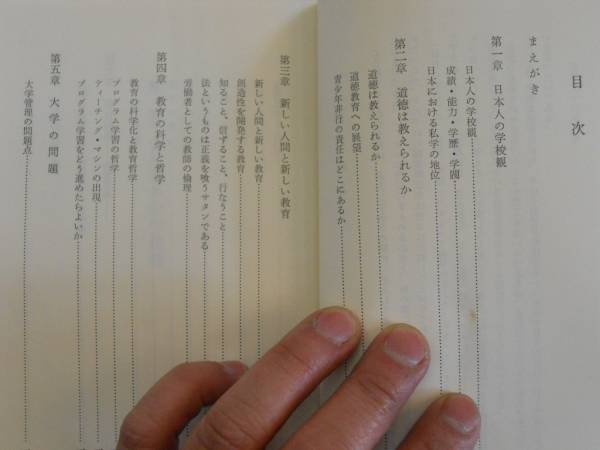 目次
まえがき
第一章 日本人の学校観
日本人の学校観
成績・能力・学歴・学閥
日本における私学の地位
第二章 道徳は教えられるか
道徳は教えられるか
道徳教育への展望
青少年非行の責任はどこにあるか
第三章 新しい人間と新しい教育
新しい人間と新しい教育
創造性を開発する教育
知ること、信ずること、行なうこと
法というものは正義を喰うサタンである
労働者としての教師の倫理
第四章 教育の科学と哲学
教育の科学化と教育哲学
プログラム学習の哲学
ティーチング・マシンの出現
プログラム学習をどう進めたらよいか
第五章 大学の問題
大学管理の問題点